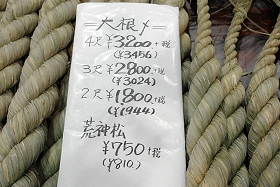 =大根〆=
4尺¥3200+税
(¥3456)
3尺¥2800+税
(¥3024)
2尺¥1800+税
(¥1944)
荒神松
¥750+税
(¥810)